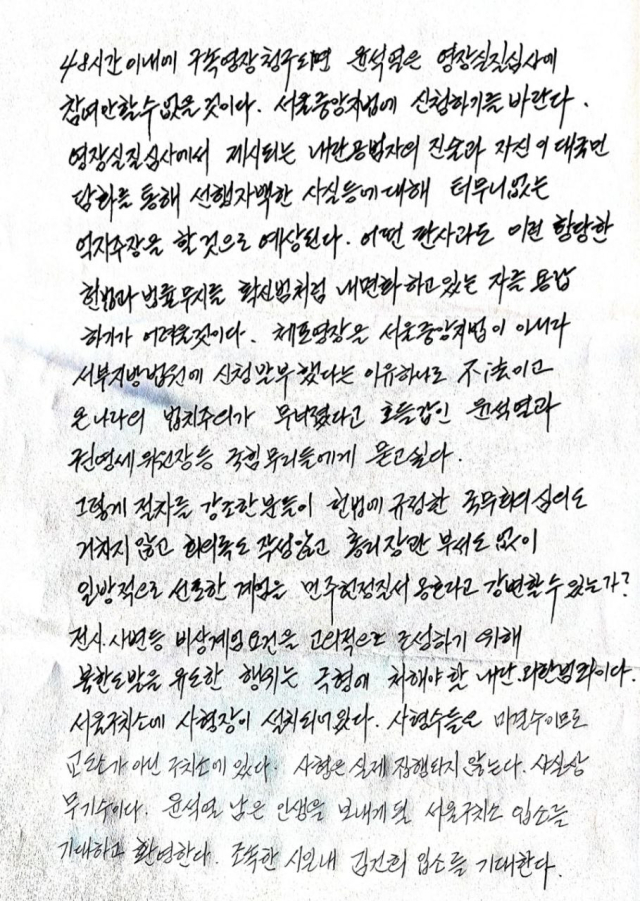 48시간 이내에 구속영장 청구되면 윤석열은 영장실질심사에
참여 안할 수 없을 것이다. 서울중앙지법에 신청하기를 바란다.
영장실질심사에서 제시되는 내란공범자의 진술과 자신이 대국민
담화를 통해 선행자백한 사실등에 대해 터무니없는
억지주장을 할 것으로 예상된다. 어떤 판사라도 이런 황당한
헌법과 법률무지를 확신범처럼 내면화하고 있는 자를 용납
하기가 어려울것이다. 체포영장을 서울중앙지법이 아니라
서부지방법원에 신청 발부했다는 이유하나로 不法이고
온나라의 법치주의가 무너졌다고 호들갑인 윤석열과
권영세위원장등 국힘무리들에게 묻고싶다.
그렇게 절차를 강조한 분들이 헌법에 규정한 국무회의 심의도
거치지 않고 회의록도 작성않고 총리 장관 부서도 없이
일방적으로 선포한 계엄은 민주헌정질서 옹호라고 강변할 수 있는가?
전시.사변등 비상계엄요건을 고의적으로 조성하기 위해
북한도발을 유도한 행위는 극형에 처해야 할 내란.외환범죄이다.
서울구치소에 사형장이 설치되어있다. 사형수들은 미결수이므로
교도소가 아닌 구치소에 있다. 사형은 실제 집행되지 않는다. 사실상
무기수이다. 윤석열 남은 인생을 보내게 될 서울구치소 입소를
기대하고 환영한다. 조속한 시일내 김건희 입소를 기대한다.